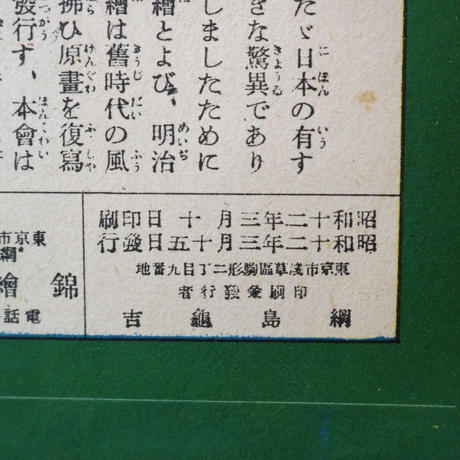 たゞ日本の有す
きな驚異であり
しましたために
繪とよび、明治
繪は舊時代の風
拂ひ原畫を復寫
發行す、本會は
昭和十二年三月十日印刷
昭和十二年三月十五日發行
東京市淺草區駒形二丁目九番地
印刷兼發行者
綱島龜吉
東京市
綱
錦繪
電話